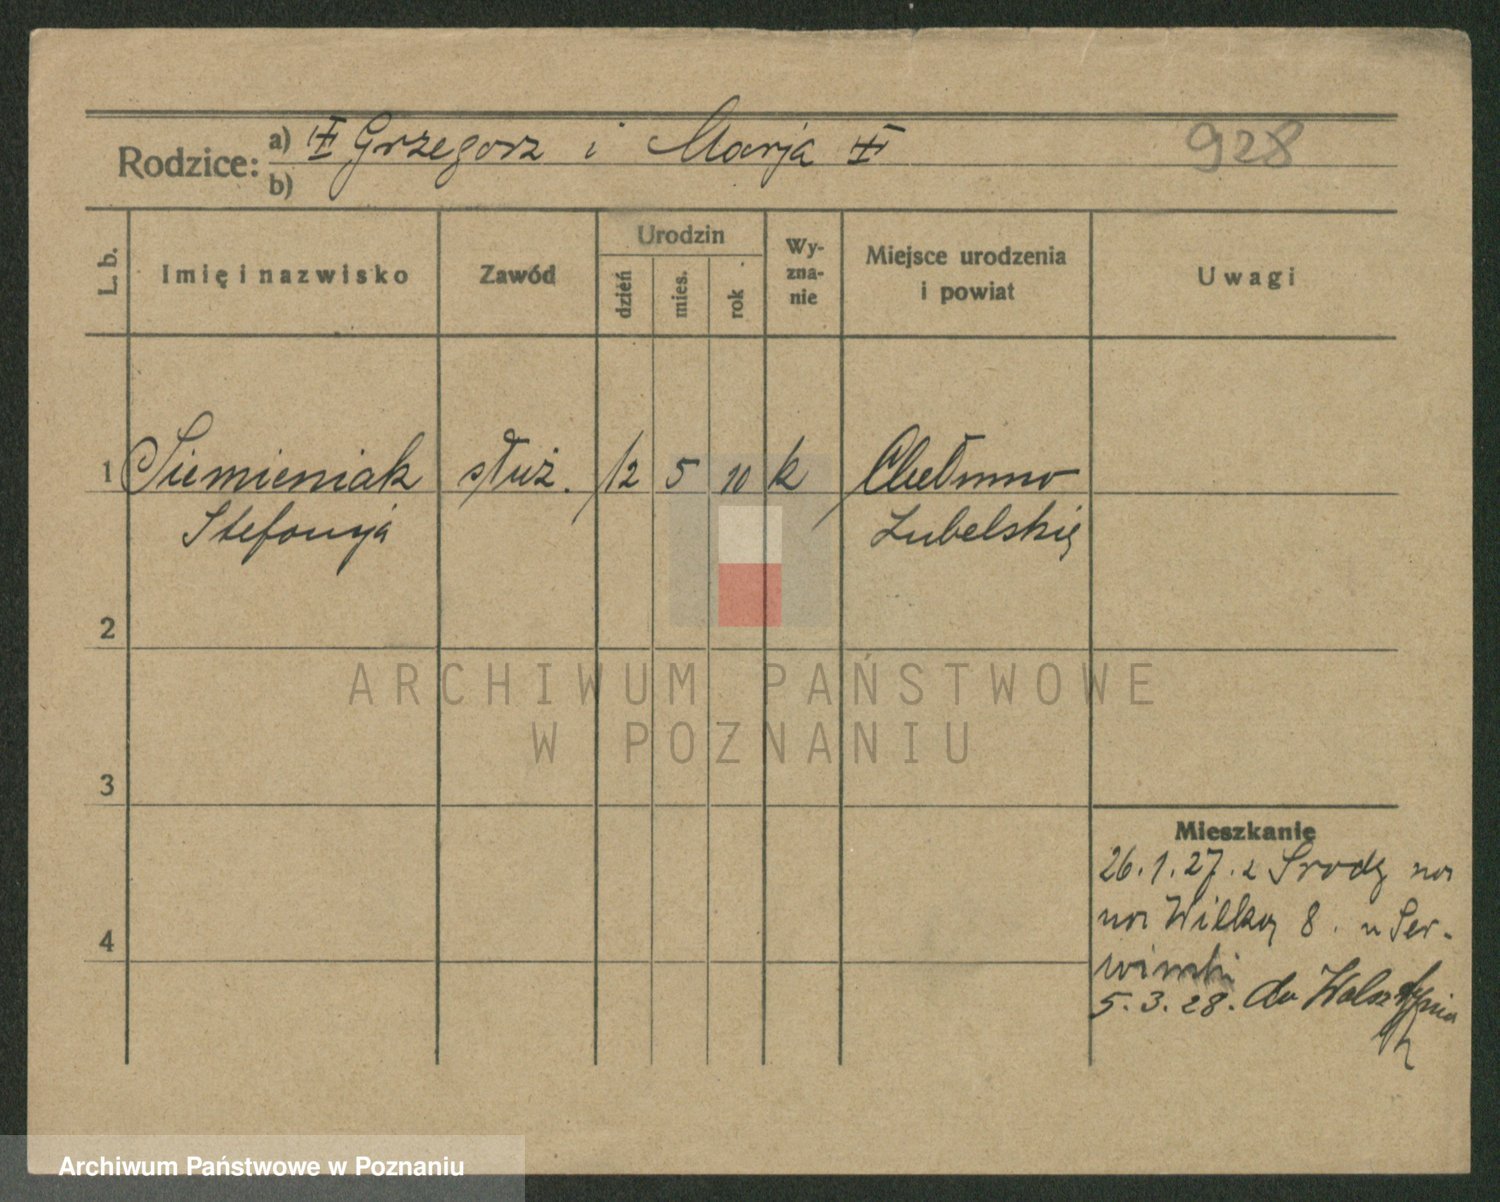 Rodzice: a) Grzegorz i Marja 928
b)
L. b. Imię i nazwisko Zawód Urodzin dzień mies. rok Wy-zna-nie Miejsce urodzenia i powiat Uwagi
1 Siemieniak służ. 12 5 10 k Chełmno
Stefanja Lubelskie
2
ARCHIWUM PAŃSTWOWE
W POZNANIU
3
Mieszkanie
26.1.27. z Środy na
na Wilka 8. u Ser-
4
winski
5.3.28. do Wolsztyna
Archiwum Państwowe w Poznaniu